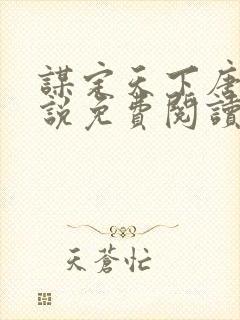 謀定天下唐
說免費閱讀
天蒼忙